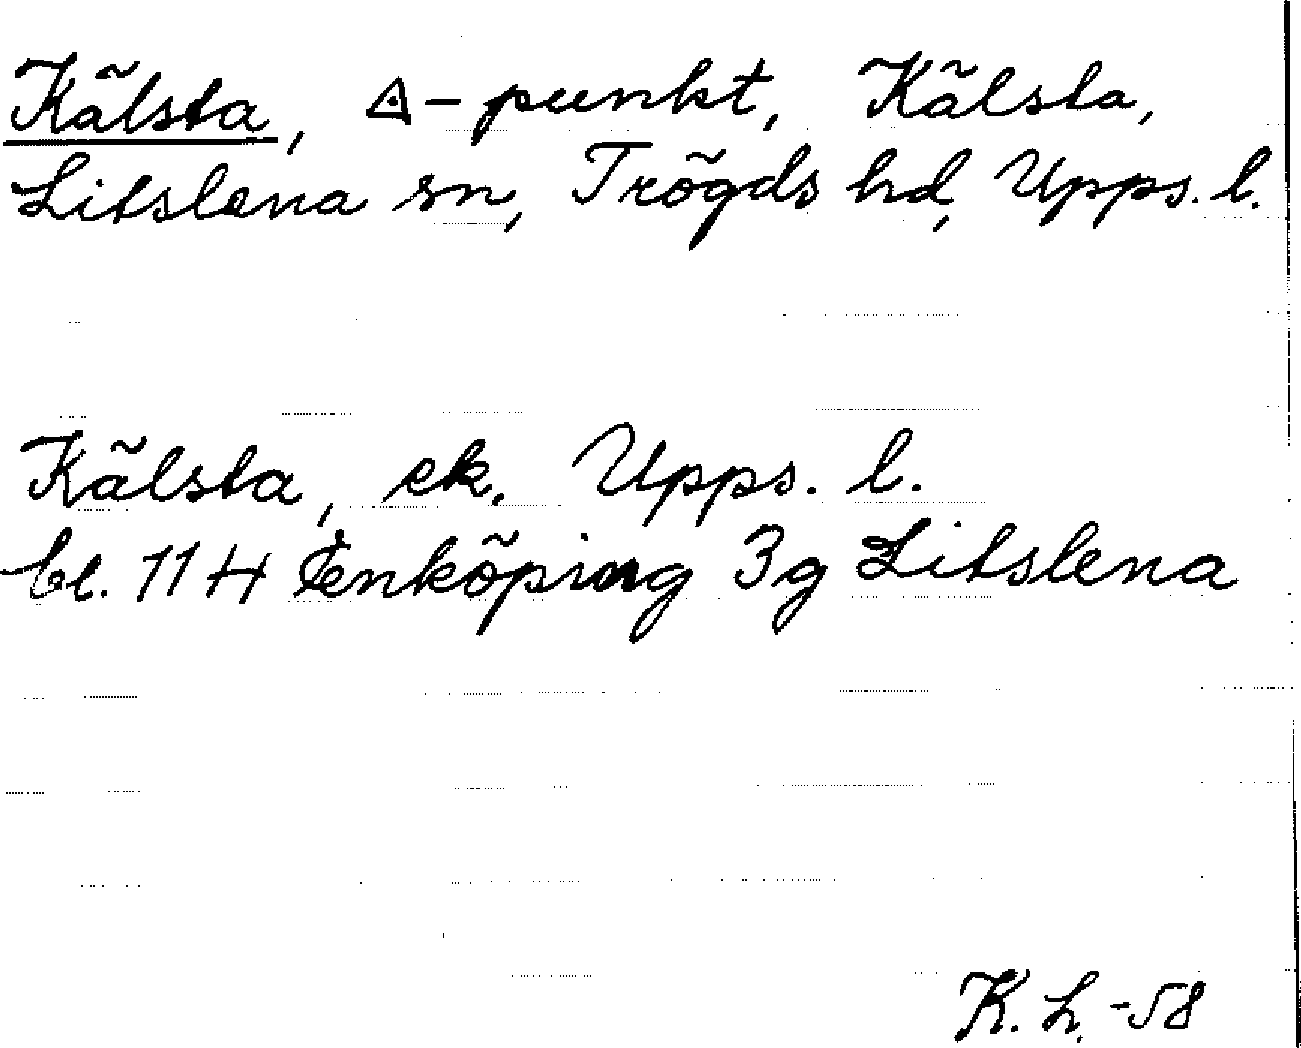 Kälsta, ◬-punkt, Kälsta,
Litslena sn, Trögds hd, Upps. l.
Kälsta, ek. Upps. l.
bl. 11 H Enköping 3g Litslena
K. L. -58